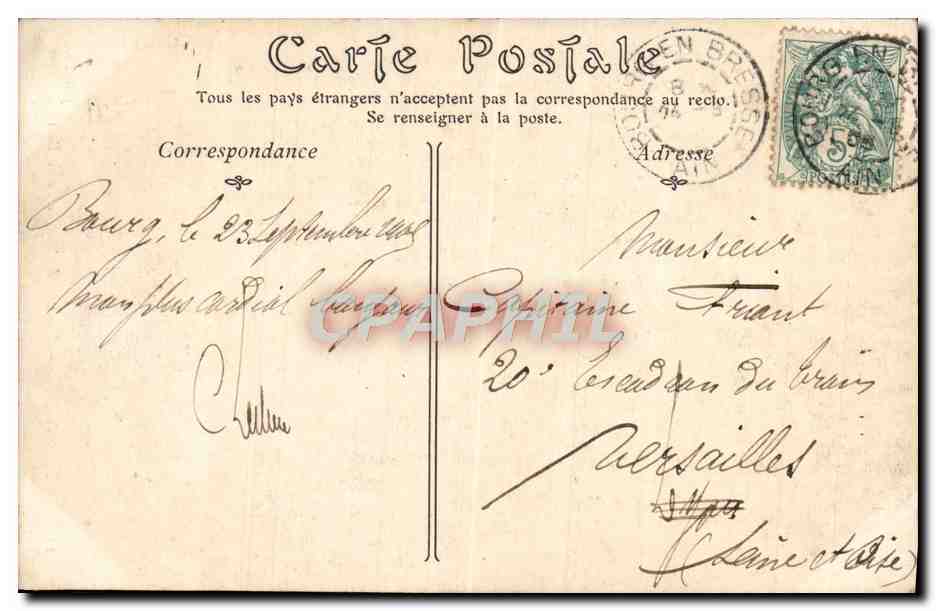 Carte Postale
Tous les pays étrangers n'acceptent pas la correspondance au recto.
Se renseigner à la poste.
Correspondance
Adresse
BOURG EN BRESSE
AIN
BOURG EN
AIN
5
POSTES
Bourg, le 23 Septembre
Mon plus cordial bonjour
Monsieur
Capitaine Friant
20e Escadron du train
Versailles
(Seine et Oise)
CPAPHIL